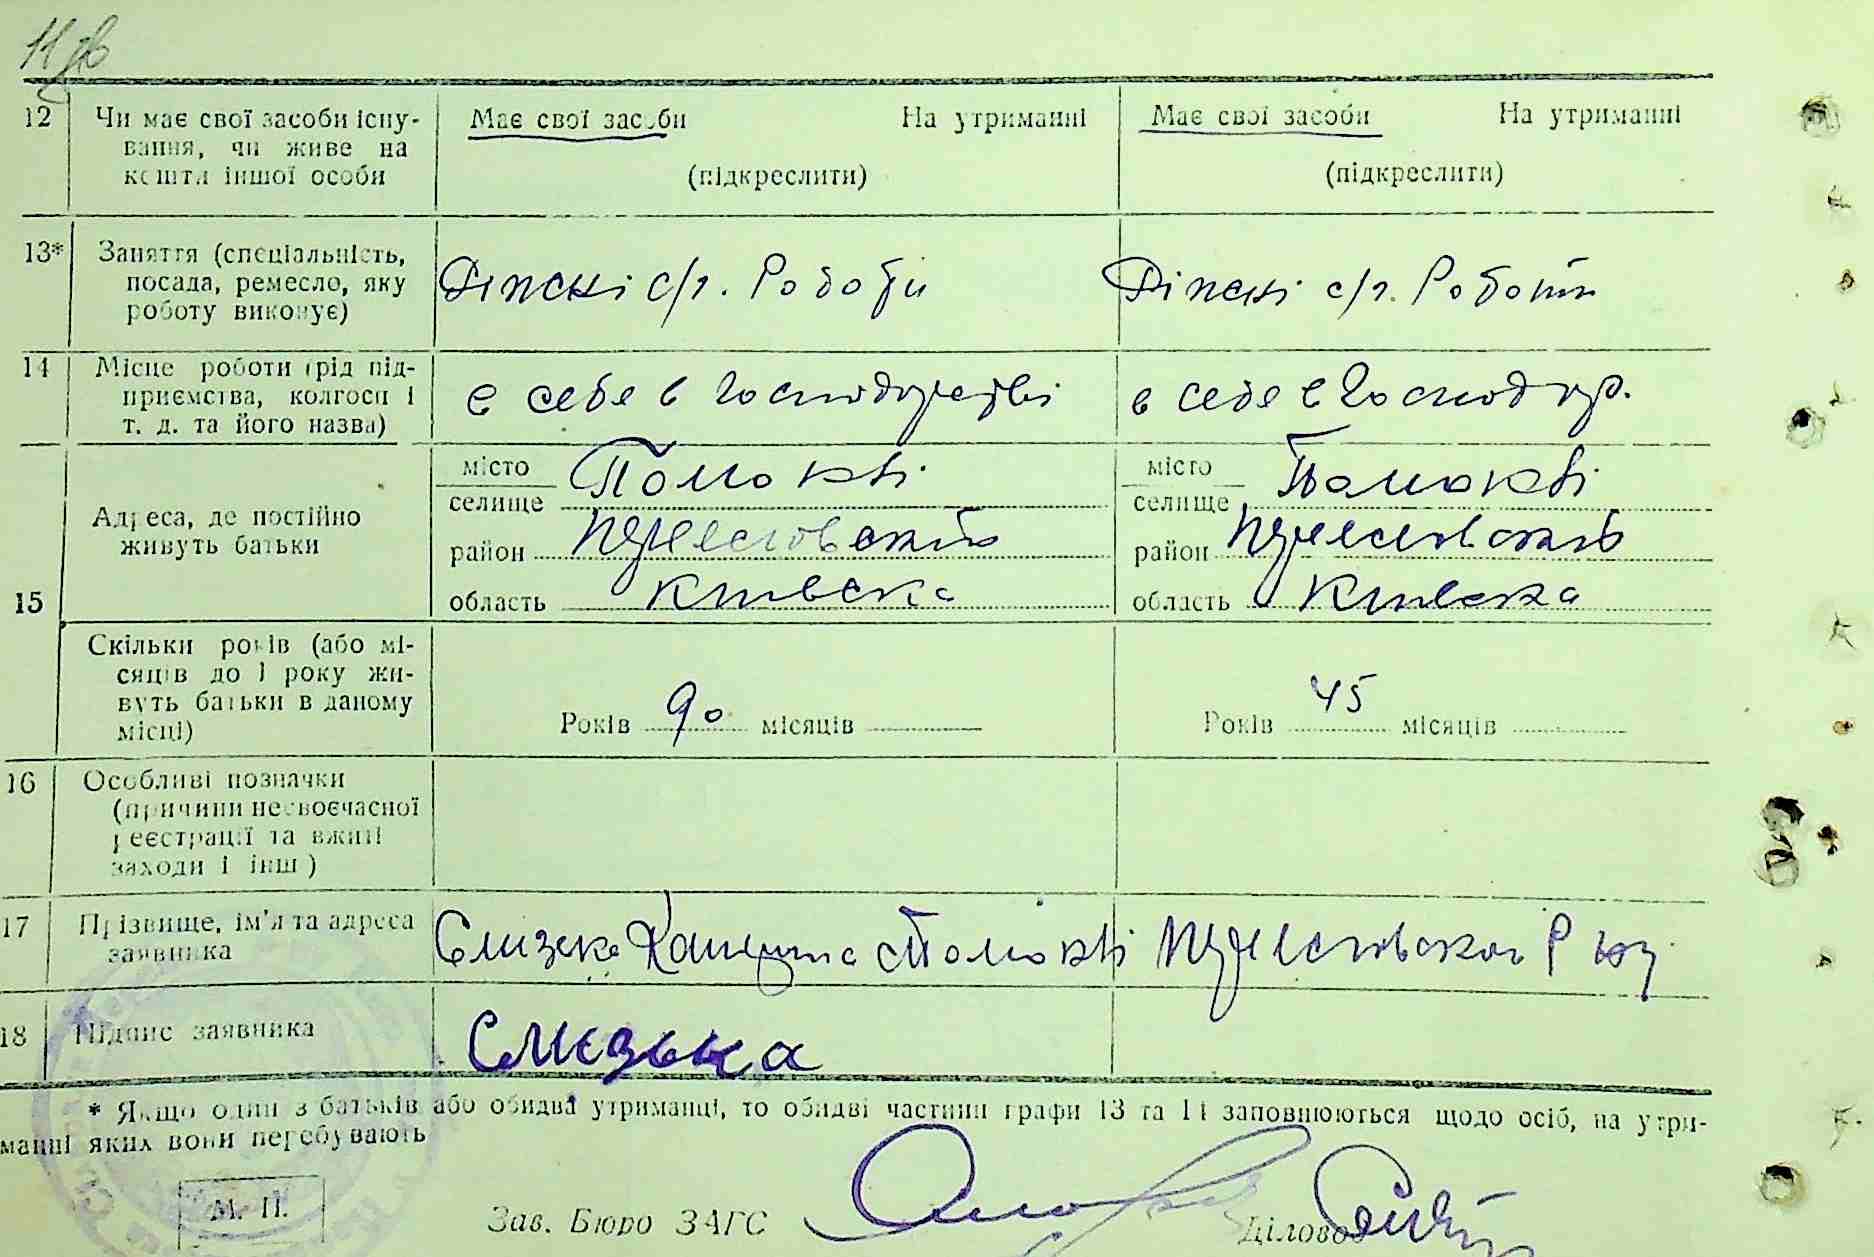 12 Чи має свої засоби існу- Має свої засоби На утриманні Має свої засоби На утриманні
вання, чи живе на
кошти іншої особи (підкреслити) (підкреслити)
13* Заняття (спеціальність,
посада, ремесло, яку с/г. Роботи с/г. Роботи
роботу виконує)
14 Місце роботи (рід під-
приємства, колгосп і в себе в господарстві в себе в Господар.
т. д. та його назва)
15 Адреса, де постійно
живуть батьки
місто Помокві місто Помокві
селище селище
район район
область Київска область Київска
Скільки років (або мі-
сяців до 1 року жи-
вуть батьки в даному
місці) Років 90 місяців Років 45 місяців
16 Особливі позначки
(причини несвоєчасної
реєстрації та вжиті
заходи і інш)
17 Прізвище, ім'я та адреса
заявника Слизска с Помокві
18 Підпис заявника Слізька
* Якщо один з батьків або обидва утриманці, то обидві частини графи 13 та 14 заповнюються щодо осіб, на утри-
манні яких вони перебувають
М. П.
Зав. Бюро ЗАГС Діловод